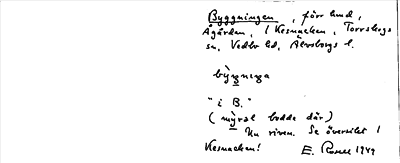 Byggningen, förr lund,
Ågården, i Kesnacken, Torrskogs
sn, Vedbo hd, Älvsborgs l.
bỳgnena
"i B."
( mỳral bodde där)
Nu riven. Se översikt i
Kesnacken! E. Rosell 1949